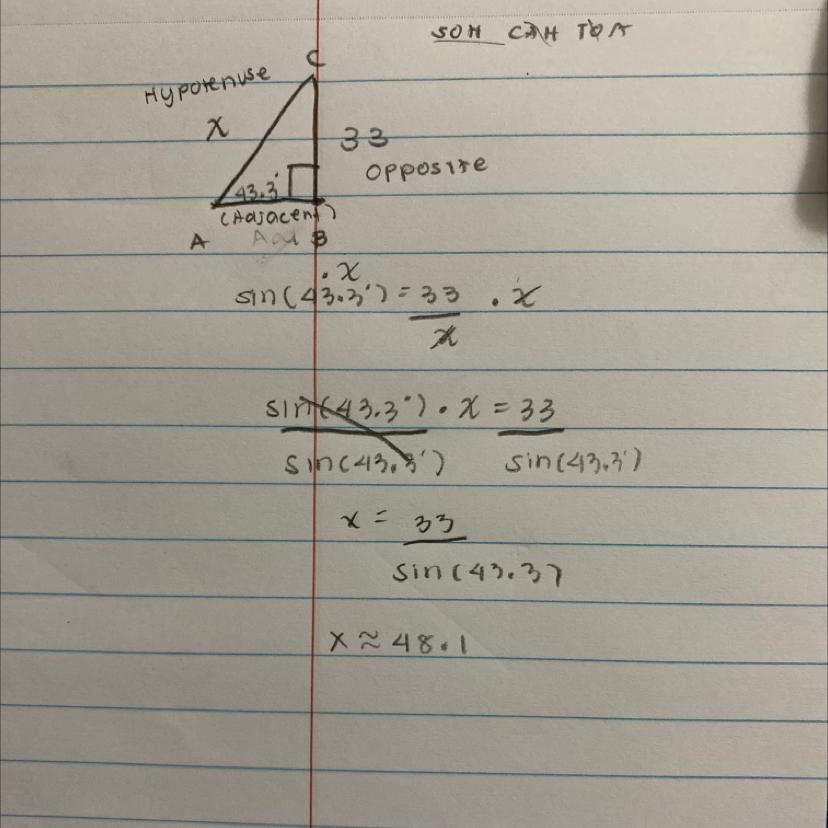 SOH CAH TOA
C
Hypotenuse
x
33
opposite
43.3°
(Adjacent)
A Adj B
· x
sin(43.3°) = 33/x · x
sin(43.3°) · x = 33
sin(43.3°) sin(43.3°)
x = 33
sin(43.3)
x ≈ 48.1